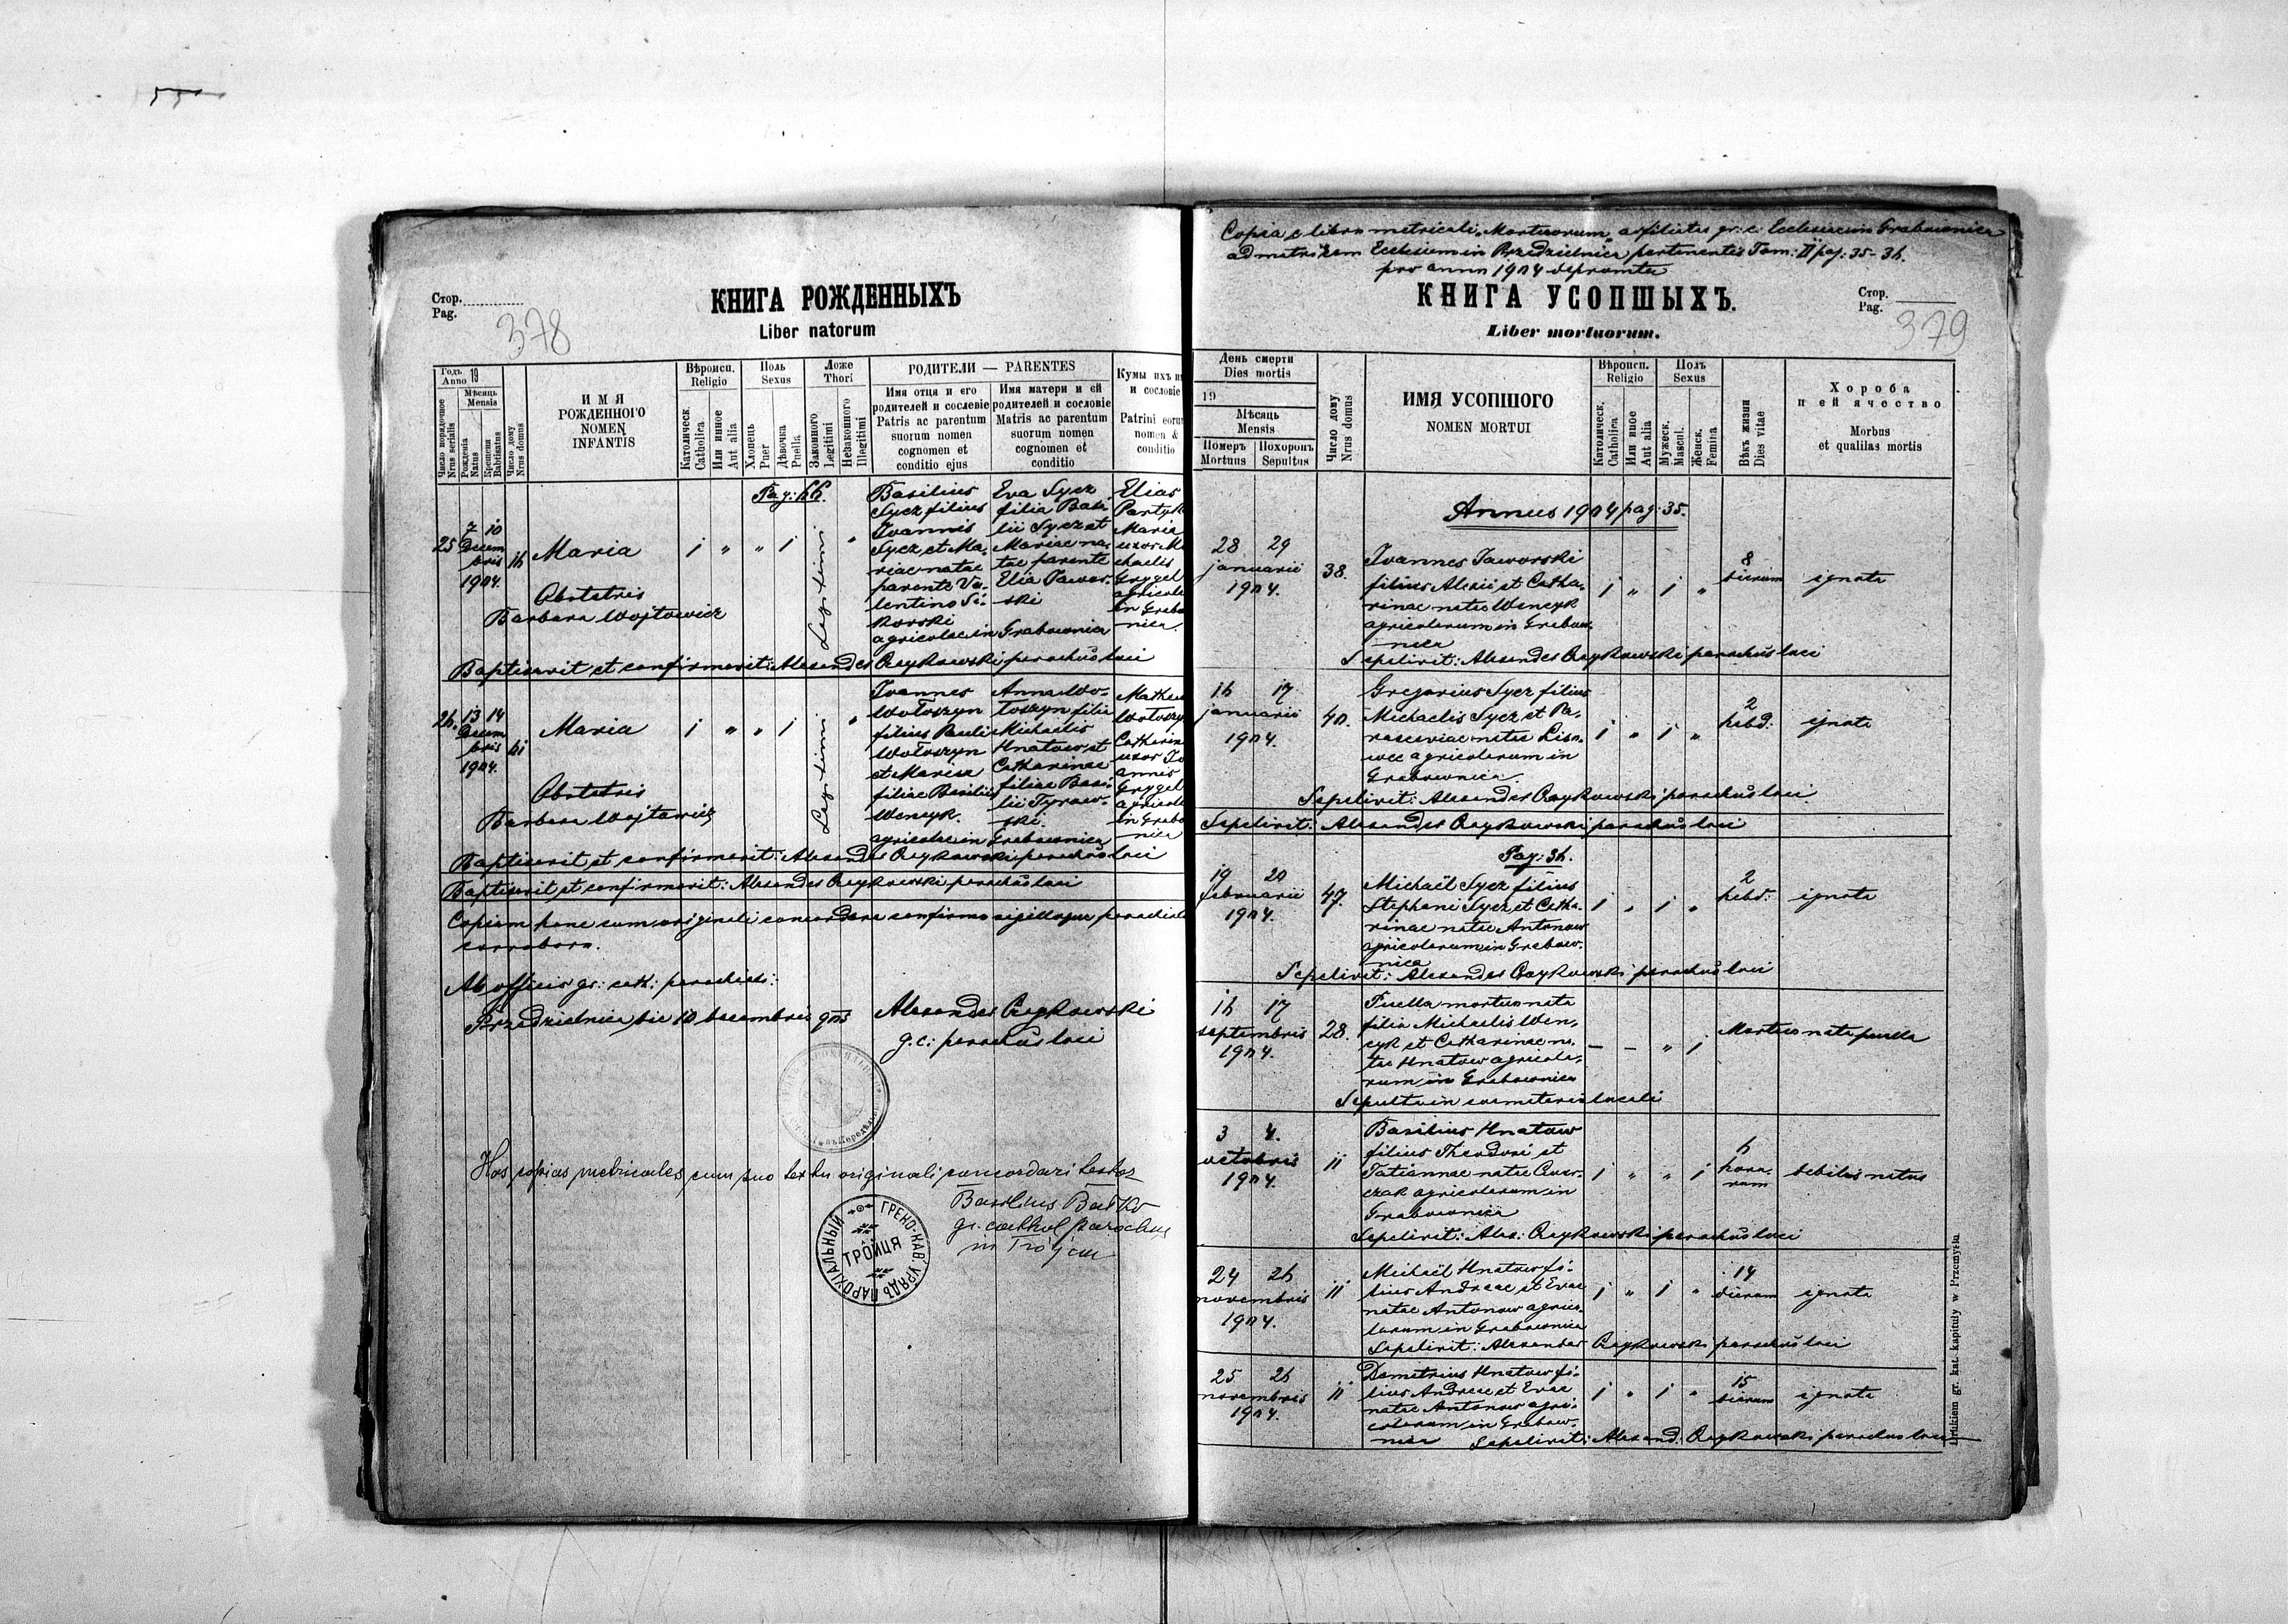 Стор.
Pag.
378
КНИГА РОЖДЕННЫХЪ
Liber natorum
Годъ 19
Anno
Мѣсяць
Mensis
Число порядочное
Nrus serialis
Рожденія
Natus
Крещенія
Babtisatus
Число дому
Nrus domus
ИМЯ
РОЖДЕННОГО
NOMEN
INFANTIS
Вѣроисп.
Religio
Католическ.
Catholica
Или инное
Aut alia
Поль
Sexus
Хлопець
Puer
Дѣвочка
Puella
Ложе
Thori
Законного
Legitimi
Незаконного
Illegitimi
РОДИТЕЛИ — PARENTES
Имя отця и его
родителей и сословіе
Patris ac parentum
suorum nomen
cognomen et
conditio ejus
Имя матери и ей
родителей и сословіе
Matris ac parentum
suorum nomen
cognomen et
conditio
Кумы ихъ
и сословіе
Patrini eorum
nomen &
conditio
Pag: 66.
25
7 10
Decem
bris
1904.
16
Maria
Obstetris
Barbara Wojtowicz
i " " i
Legitimi
"
Basilius
Sycz filius
Ioannis
Sycz et Ma-
riae natae
parente Va-
lentino Si-
korski
agricolae in Grabownica
Eva Sycz
filia Basi-
lii Sycz et
Mariae na-
tae parente
Elia Jawor-
ski
Elias
Partyk
Maria
uxor Mi
chaelis
Grygel
agricolae
in Grabo
wnica.
Baptisavit et confirmavit: Alexander Czajkowski parochus loci
26.
13 14
Decem
bris
1904.
61
Maria
Obstetris
Barbara Wojtowicz
i " " i
Legitimi
"
Ioannes
Wołoszyn
filius Pauli
Wołoszyn
et Mariae
filiae Basilii
Wencyk.
agricolae in Grabownica
Anna Wo-
łoszyn filia
Michaelis
Hnatow et
Catharinae
filiae Basi-
lii Tyraw-
ski.
Wołoszy
Catharin
uxor Jo
annis
Grygel
agricolae
in Grabo
wnica
Baptisavit et confirmavit: Alexander Czajkowski parochus loci
Baptisavit et confirmavit: Alexander Czajkowski parochus loci
Copiam hanc cum originali concordare confirmo sigilloque parochiali
corroboro.
Ab officio gr: cath: parochiali:
Przedzielnica, die 10 decembris 905
Alexander Czajkowski
g.c: parochus loci
Has copias metricales cum suo textu originali concordari testor
Basilius Baťko
gr. cathol parochus
in Trójca
ГРЕКО-КАТ. УРЯДЪ ПАРОХІАЛЬНЫЙ
ТРОЙЦЯ
Copia e libro metricali "Mortuorum" a filialis gr: c: Ecclesiae in Grabownica
ad matricem Ecclesiam in Przedzielnica pertinentis Tom: II pag: 35-36.
pro anno 1904 depromta
КНИГА УСОПШЫХЪ.
Liber mortuorum.
Стор.
Pag.
379
День смерти
Dies mortis
19
Мѣсяць
Mensis
Померъ
Mortuus
Похоронъ
Sepultus
Число дому
Nrus domus
ИМЯ УСОПШОГО
NOMEN MORTUI
Вѣроисп.
Religio
Католическ.
Catholica
Или иное
Aut alia
Полъ
Sexus
Мужеск.
Mascul.
Женск.
Femina
Вѣкъ жизни
Dies vitae
Хороба
и ей ячество
Morbus
et qualitas mortis
Annus 1904 pag: 35.
28 29
januarii
1904.
38.
Ioannes Jaworski
filius Alexii et Catha-
rinae natae Wencyk
agricolarum in Grabow-
nica
i " i "
8
dierum
ignota
Sepelivit: Alexander Czajkowski parochus loci
16 17
januarii
1904.
40.
Gregorius Sycz filius
Michaelis Sycz et Pa-
rasceviae natae Liso-
wec agricolarum in
Grabownica.
i " i "
2
hebd:
ignota
Sepelivit: Alexander Czajkowski parochus loci.
Sepelivit: Alexander Czajkowski parochus loci
Pag: 36.
19 20
februarii
1904.
47.
Michaël Sycz filius
Stephani Sycz et Catha-
rinae natae Antonow
agricolarum in Grabow-
nica
i " i "
2
hebd:
ignota
Sepelivit: Alexander Czajkowski parochus loci
16 17
septembris
1904.
28.
Puella mortuo nata
filia Michaelis Wen-
cyk et Catharinae na-
tae Hnatow agricola-
rum in Grabownica
— — " i
Mortuo nata puella
Sepulta in coemeterio locali
3 4.
octobris
1904.
11
Basilius Hnatow
filius Theodori et
agricolarum in
Grabownica
i " " i
6
hora-
rum
debilis natus
Sepelivit: Alex: Czajkowski parochus loci
24 26
novembris
1904.
11
Michaël Hnatow fi-
lius Andreae et Evae
natae Antonow agrico-
larum in Grabownica
i " i "
14
dierum
ignota
Sepelivit: Alexander Czajkowski parochus loci
25 26
novembris
1904.
11
Demetrius Hnatow fi-
lius Andreae et Evae
natae Antonow agri-
colarum in Grabow-
nica
i " i "
15
dierum
ignota
Sepelivit: Alexand: Czajkowski parochus loci
Drukiem gr. kat. kapituły w Przemyślu.